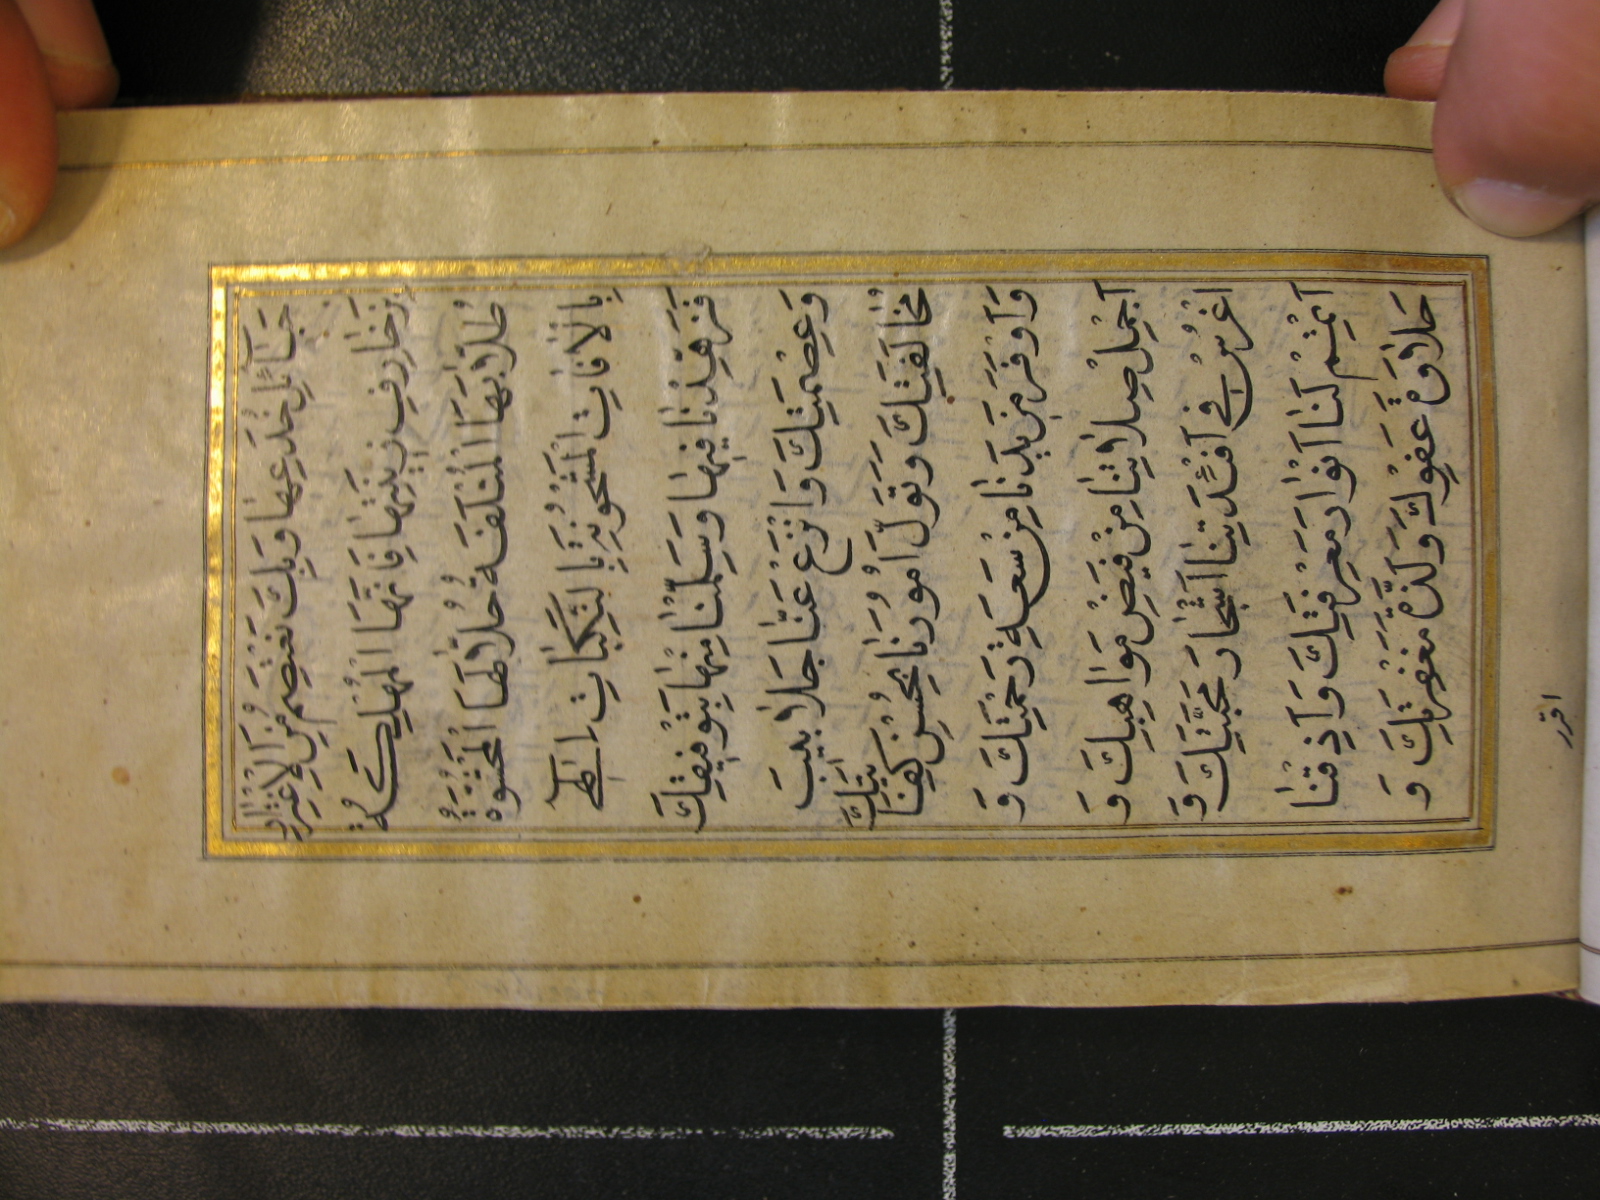 حَبَآئِلِ خُدَعِهَا وَبِكَ نَعْتَصِمُ مِنَ الْاِغْتِرَارِ
بِزَخَارِفِ زِينَتِهَا فَاِنَّهَا الْمُهْلِكَةُ
طُلَّابَهَا الْمُتْلِفَةُ حُلَّالَهَا الْمَحْشُوَّةُ
بِالْاٰفَاتِ الْمَشْحُونَةُ بِالنَّكَبَاتِ اِلٰهِي
فَزَهِّدْنَا فِيهَا وَسَلِّمْنَا مِنْهَا بِتَوْفِيقِكَ
وَعِصْمَتِكَ وَانْزَعْ عَنَّا جَلَابِيبَ
مُخَالَفَتِكَ وَتَوَلَّ اُمُورَنَا بِحُسْنِ كِفَايَتِكَ
وَاَوْفِرْ مَزِيدَنَا مِنْ سَعَةِ رَحْمَتِكَ وَ
اَجْمِلْ صِلَاتِنَا مِنْ فَيْضِ مَوَاهِبِكَ وَ
اغْرِسْ فِي اَفْئِدَتِنَا اَشْجَارَ مَحَبَّتِكَ وَ
اَتْمِمْ لَنَا اَنْوَارَ مَعْرِفَتِكَ وَاَذِقْنَا
حَلَاوَةَ عَفْوِكَ وَلَذَّةَ مَغْفِرَتِكَ وَ
اقرر